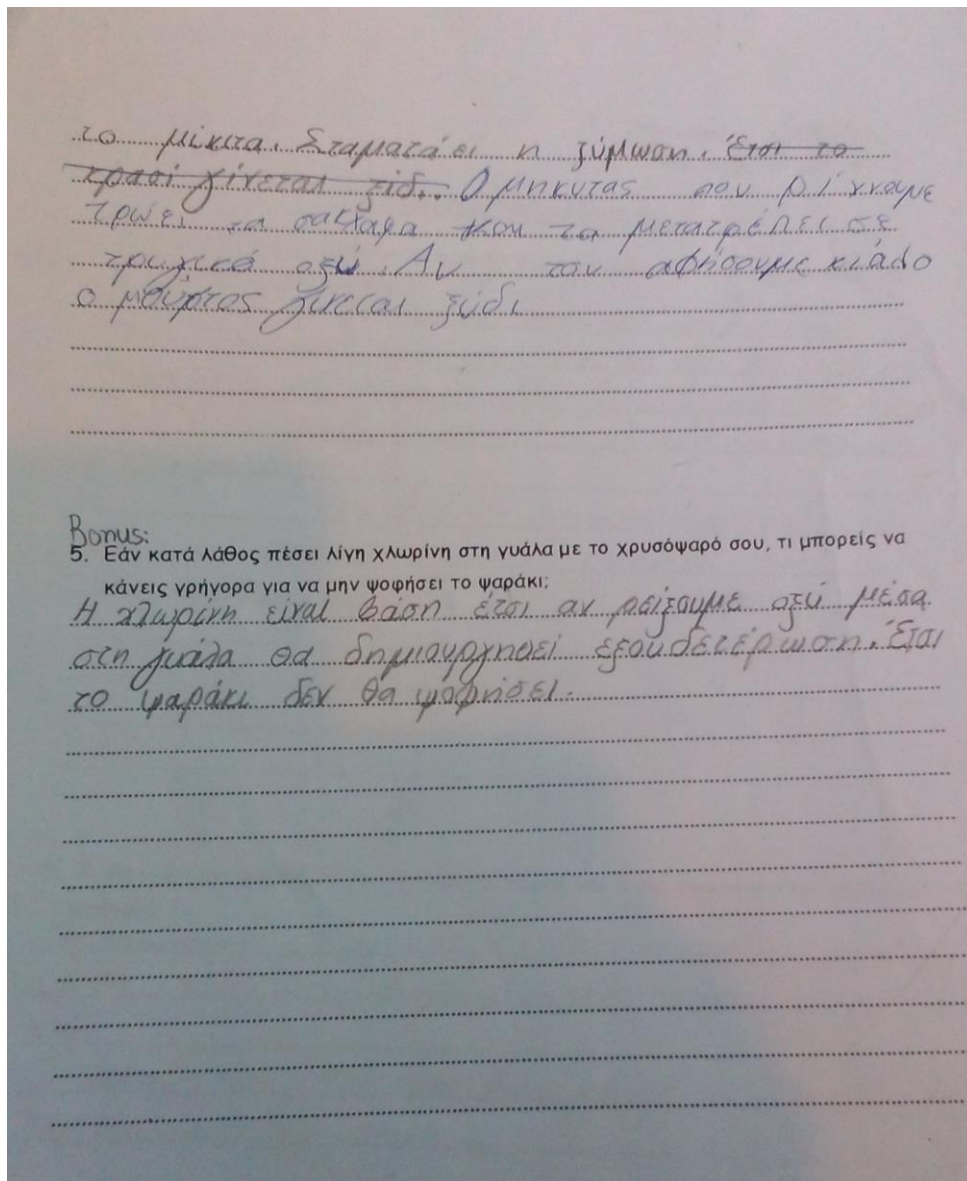 το μίκιτα. Σταματάει η ζύμωση. Έτσι το
κρασί γίνεται ξίδ.. Ο μηκυτας που ρίχνουμε
τρώει τα σακχαρα και τα μετατρέπει σε
τρυγικό οξύ. Αν τον αφήσουμε κιάλο
ο μούστος γίνεται ξύδι
Bonus:
5. Εάν κατά λάθος πέσει λίγη χλωρίνη στη γυάλα με το χρυσόψαρό σου, τι μπορείς να
κάνεις γρήγορα για να μην ψοφήσει το ψαράκι;
Η χλωρίνη είναι βάση έτσι αν ρείξουμε οξύ μέσα
στη γυάλα θα δημιουργηθεί εξουδετέρωση. Έτσι
το ψαράκι δεν θα ψοφήσει.